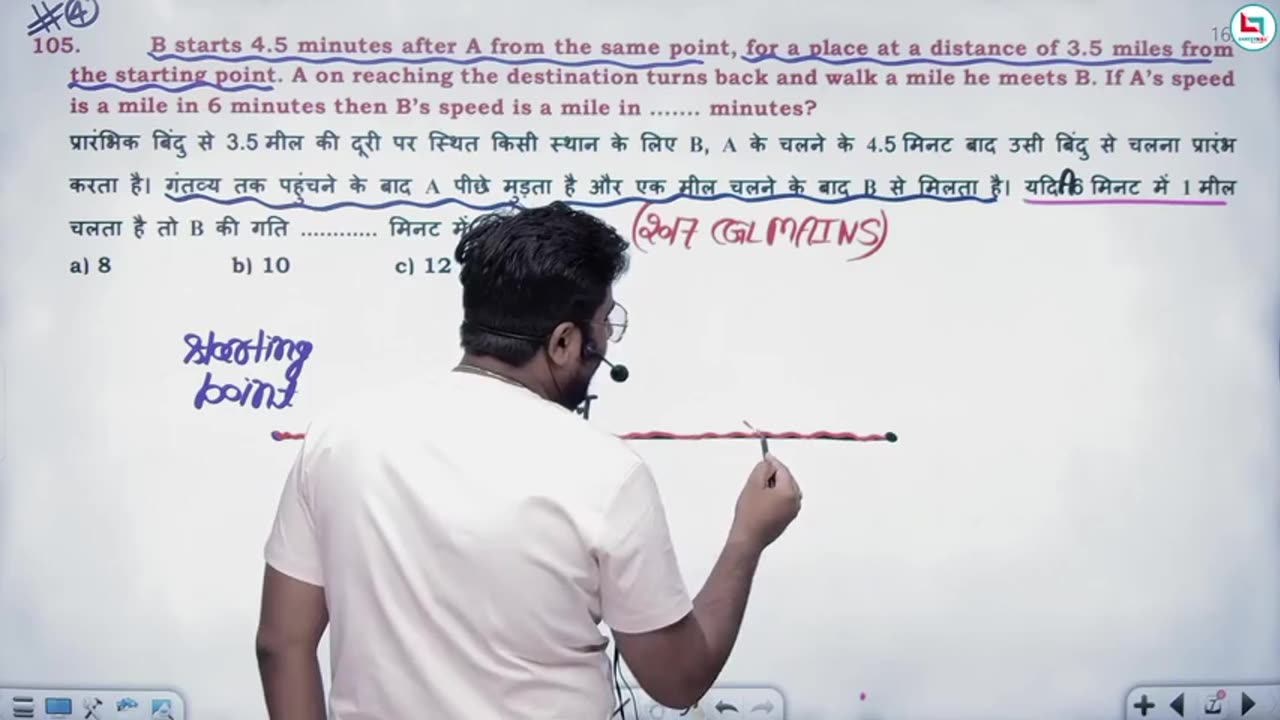 #④
16
105. B starts 4.5 minutes after A from the same point, for a place at a distance of 3.5 miles from
the starting point. A on reaching the destination turns back and walk a mile he meets B. If A's speed
is a mile in 6 minutes then B's speed is a mile in ....... minutes?
प्रारंभिक बिंदु से 3.5 मील की दूरी पर स्थित किसी स्थान के लिए B, A के चलने के 4.5 मिनट बाद उसी बिंदु से चलना प्रारंभ
करता है। गंतव्य तक पहुंचने के बाद A पीछे मुड़ता है और एक मील चलने के बाद B से मिलता है। यदि A 6 मिनट में 1 मील
चलता है तो B की गति ............ मिनट में
(2017 CGL MAINS)
a) 8 b) 10 c) 12
starting
point